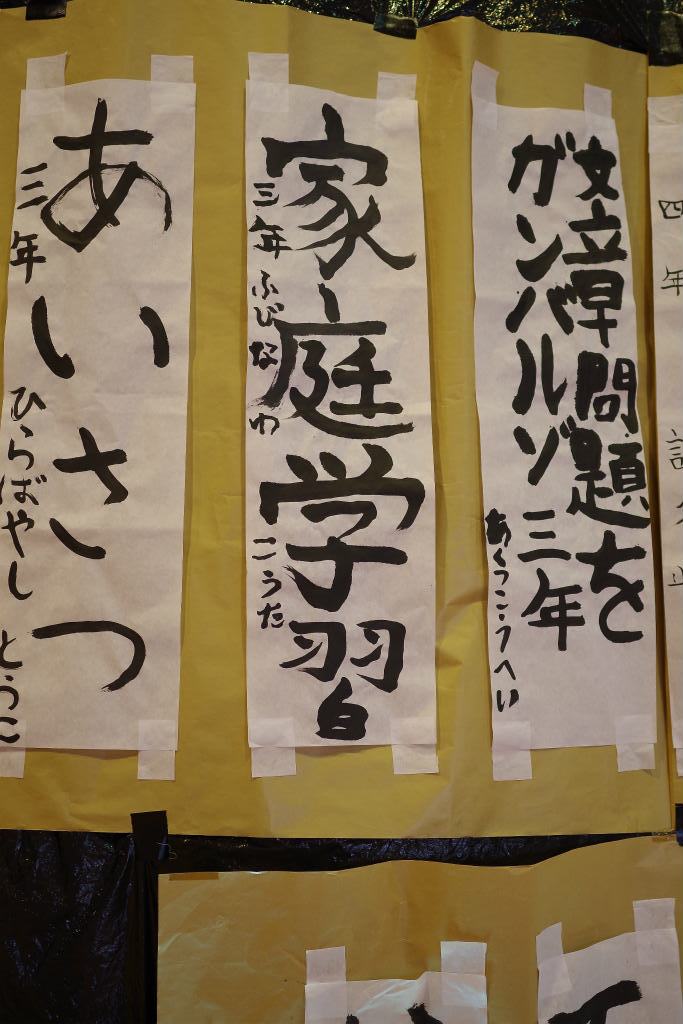 四年
文章問題を
ガンバルゾ 三年
あくつこうへい
家庭学習
三年 ふじなわ こうた
あいさつ
三年 ひらばやし とうこ